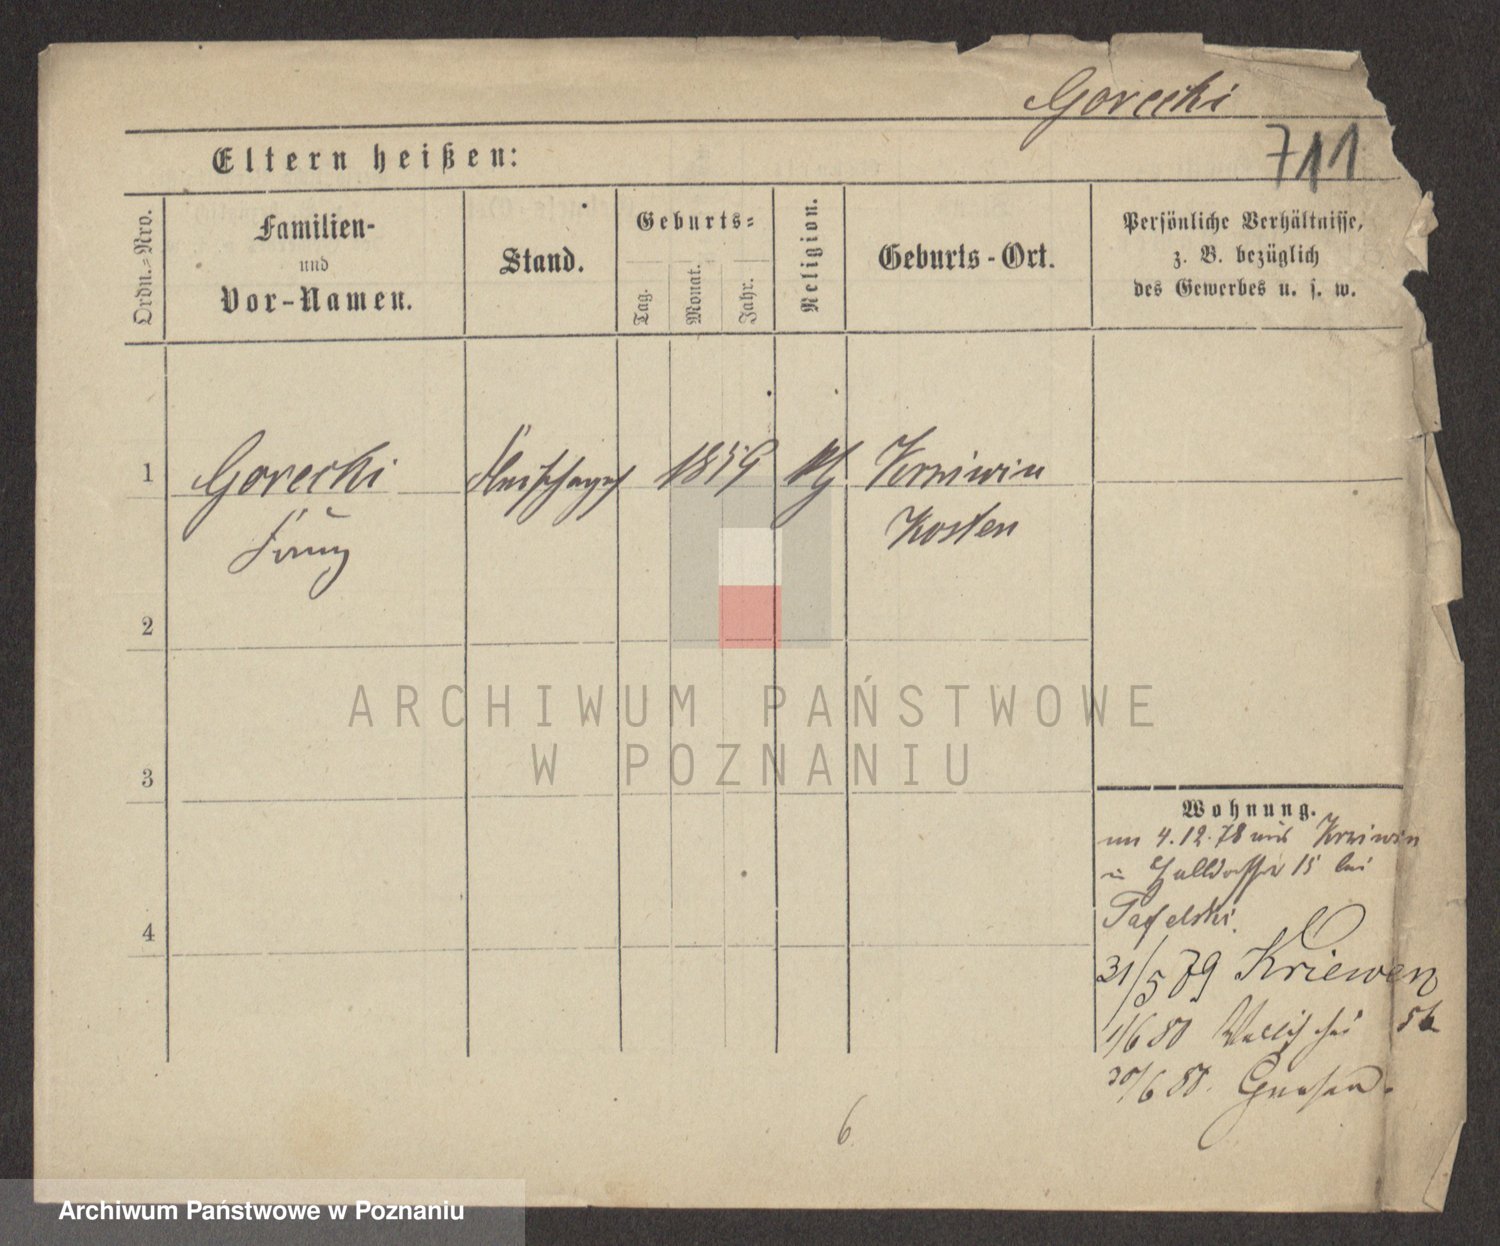 Gorecki
711
Eltern heißen:
Ordn.=Nro.
Familien-
und
Vor-Namen.
Stand.
Geburts=
Tag.
Monat.
Jahr.
Religion.
Geburts-Ort.
Persönliche Verhältnisse,
z. B. bezüglich
des Gewerbes u. s. w.
1
Gorecki
1859
Krziwin
Kosten
2
3
4
ARCHIWUM PAŃSTWOWE
W POZNANIU
Wohnung.
4.12.78 aus Krziwin
in Halldorfstr 15 bei
31/5 79 Kriewen
1/6 80 Wallischei
30/6 80. Gnesen.
6
Archiwum Państwowe w Poznaniu